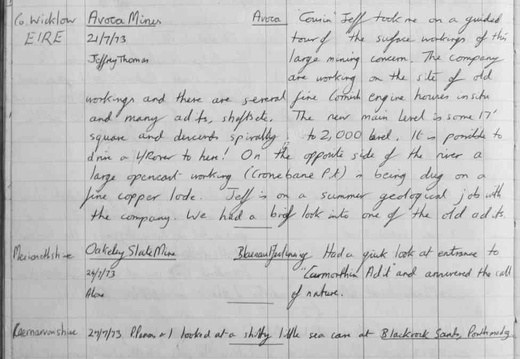 Co. Wicklow Avoca Mines Avoca 'Cousin' Jeff took me on a guided
EIRE 21/7/73 tour of the surface workings of this
Jeffrey Thomas large mining concern. The company
are working on the site of old
workings and there are several fine Cornish engine houses insitu
and many adits, shafts etc. The new main level is some 17'
square and descends spirally to 2,000 level. It is possible to
drive a L/Rover to here! On the opposite side of the river a
large opencast working (Cronebane Pit) is being dug on a
fine copper lode. Jeff is on a summer geological job with
the company. We had a brief look into one of the old adits.
Merionethshire Oakeley Slate Mine Blaenau Ffestiniog Had a quick look at entrance to
24/7/73 "Cwmorthin Adit" and answered the call
Alone of nature.
Caernarvonshire 27/7/73 & I looked at a shitty little sea cave at Blackrock Sands, Porthmadog